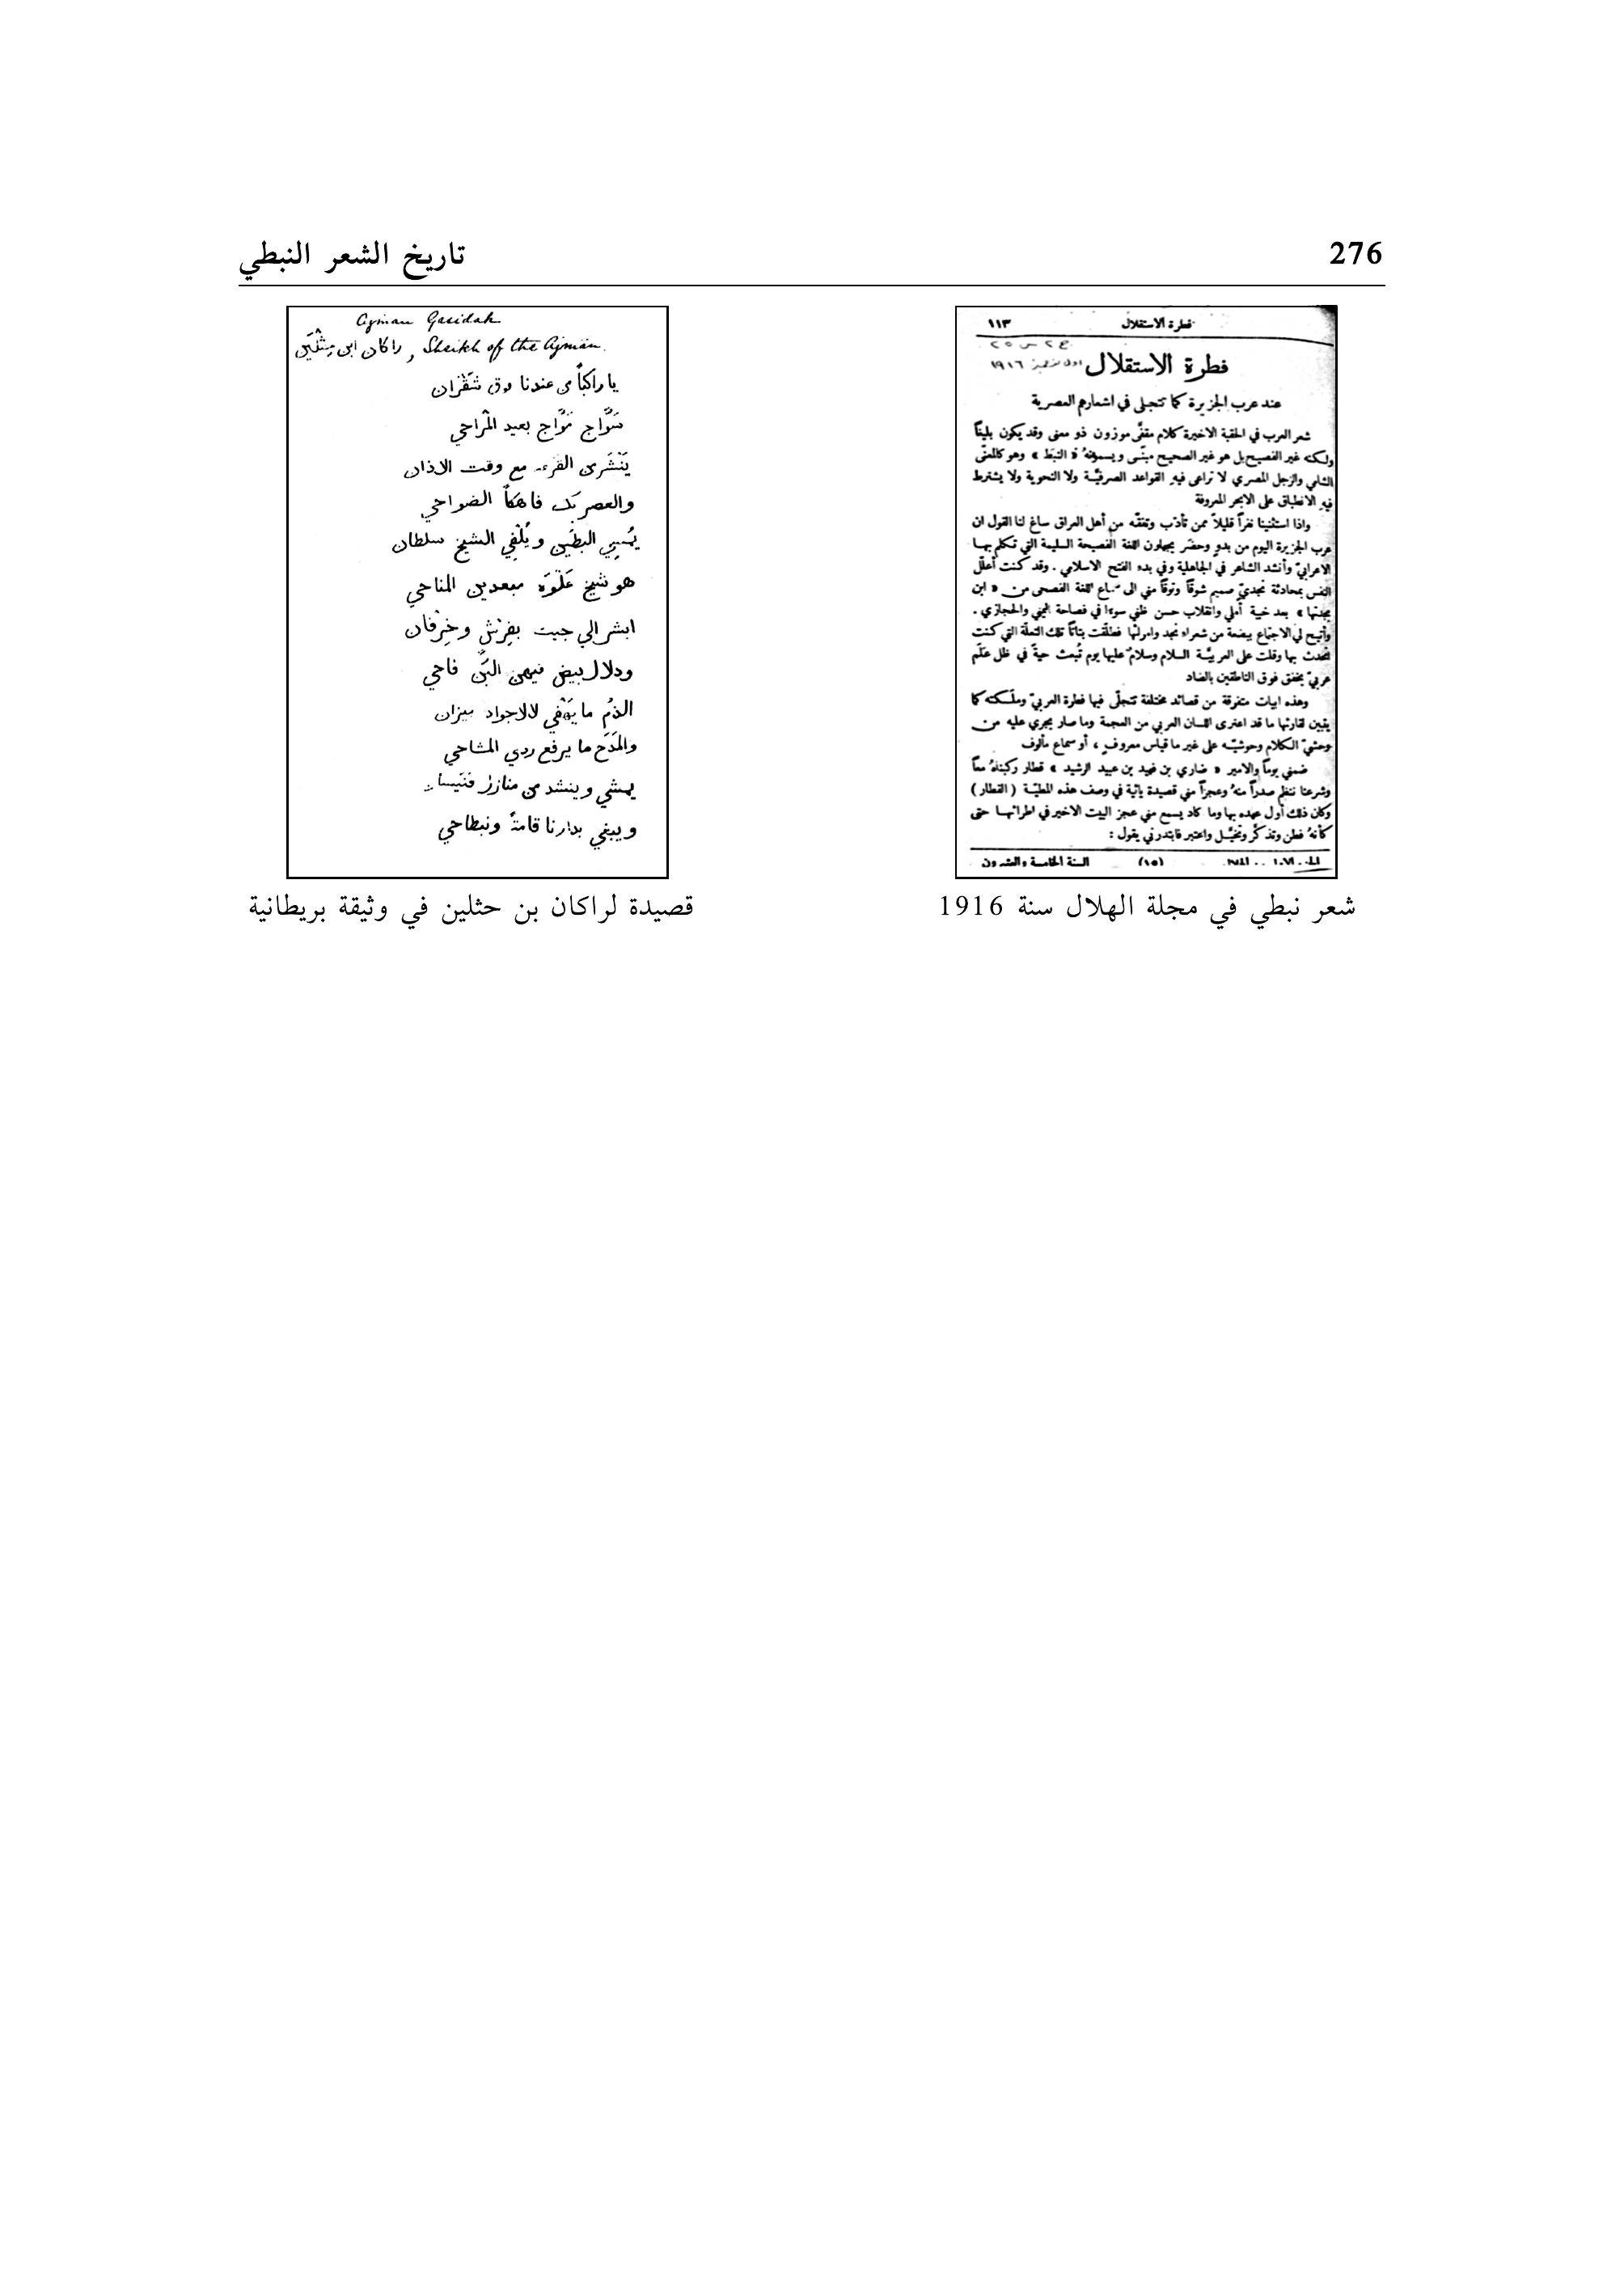 276
تاريخ الشعر النبطي
فطرة الاستقلال
١١٣
فطرة الاستقلال
١٩١٦
عند عرب الجزيرة كما تتجلى في اشعارهم العصرية
شعر العرب في الحقبة الاخيرة كلام مقفًّى موزون ذو معنى وقد يكون بليغاً
ولكنه غير الفصيح بل هو غير الصحيح مبنًى ويسمونهُ « النبط » وهو كالمعنّى
الشامي والزجل المصري لا تراعى فيهِ القواعد الصرفيَّة ولا النحوية ولا يشترط
فيهِ الانطباق على الابحر المعروفة
واذا استثنينا نفراً قليلاً ممن تأدَّب وتفقَّه من أهل العراق ساغ لنا القول ان
عرب الجزيرة اليوم من بدوٍ وحضَر يجهلون اللغة الفصيحة السليمة التي تكلم بهـا
الأعرابيّ وأنشد الشاعر في الجاهلية وفي بدء الفتح الاسلامي . وقد كنت أعلّل
النفس بمحادثة نجديّ صميم شوقاً وتوقاً مني الى سماع اللغة الفصحى مـن « ابن
بجدتها » بعد خيبة أملي وانقلاب حسن ظني سوءًا في فصاحة اليمني والحجازي .
وأُتيح لي الاجتماع ببضعة من شعراء نجد وامرائها فطلَّقت بتاتاً تلك التعلّة التي كنت
أتحدث بها وقلت على العربيَّـة السلام وسلامٌ عليها يوم تُبعث حيةً في ظل عَلَم
عربيّ يخفق فوق الناطقين بالضاد
وهذه ابيات متفرقة من قصائد مختلفة تتجلّى فيها فطرة العربيّ وملَـكته كما
يتبين لقارئها ما قد اعترى اللسان العربي من العجمة وما صار يجري عليه مـن
وحشيّ الكلام وحوشيّـه على غير ما قياس معروفٍ ، أو سماع مألوف
ضمني يوماً والامير « ضاري بن فهيد بن عبيد الرشيد » قطار ركبناهُ معاً
وشرعنا ننظم صدراً منهُ وعجزاً مني قصيدة يائية في وصف هذه المطيَّـة ( القطار )
وكان ذلك أول عهده بها وما كاد يسمع مني عجز البيت الاخير في اطرائهـا حتى
كأنهُ فطن وتذكَّر وتخيَّـل واعتبر فابتدرني يقول :
(١٥)
السنة الخامسة والعشرون
شعر نبطي في مجلة الهلال سنة 1916
Ajman Qasidah
راكان ابن حِثْلَين , Sheikh of the Ajman.
يا راكباً من عندنا فوق شَقْران
بعيد المْراحي
مع وقت الاذان
والعصر الضواحي
البطَين ويُلْفي الشيخ سلطان
هو شيخ عَلْوَه مبعدين المناحي
ابشر الي جيت بفِرْش وخِرْفان
ودلال بيض فيهن البَنّ فاحي
الذَّم ما لالاجواد ميزان
والمَدَح ما يرفع ردي المشاحي
يمشي وينشد من منازل
ويبغي بدارنا
قصيدة لراكان بن حثلين في وثيقة بريطانية